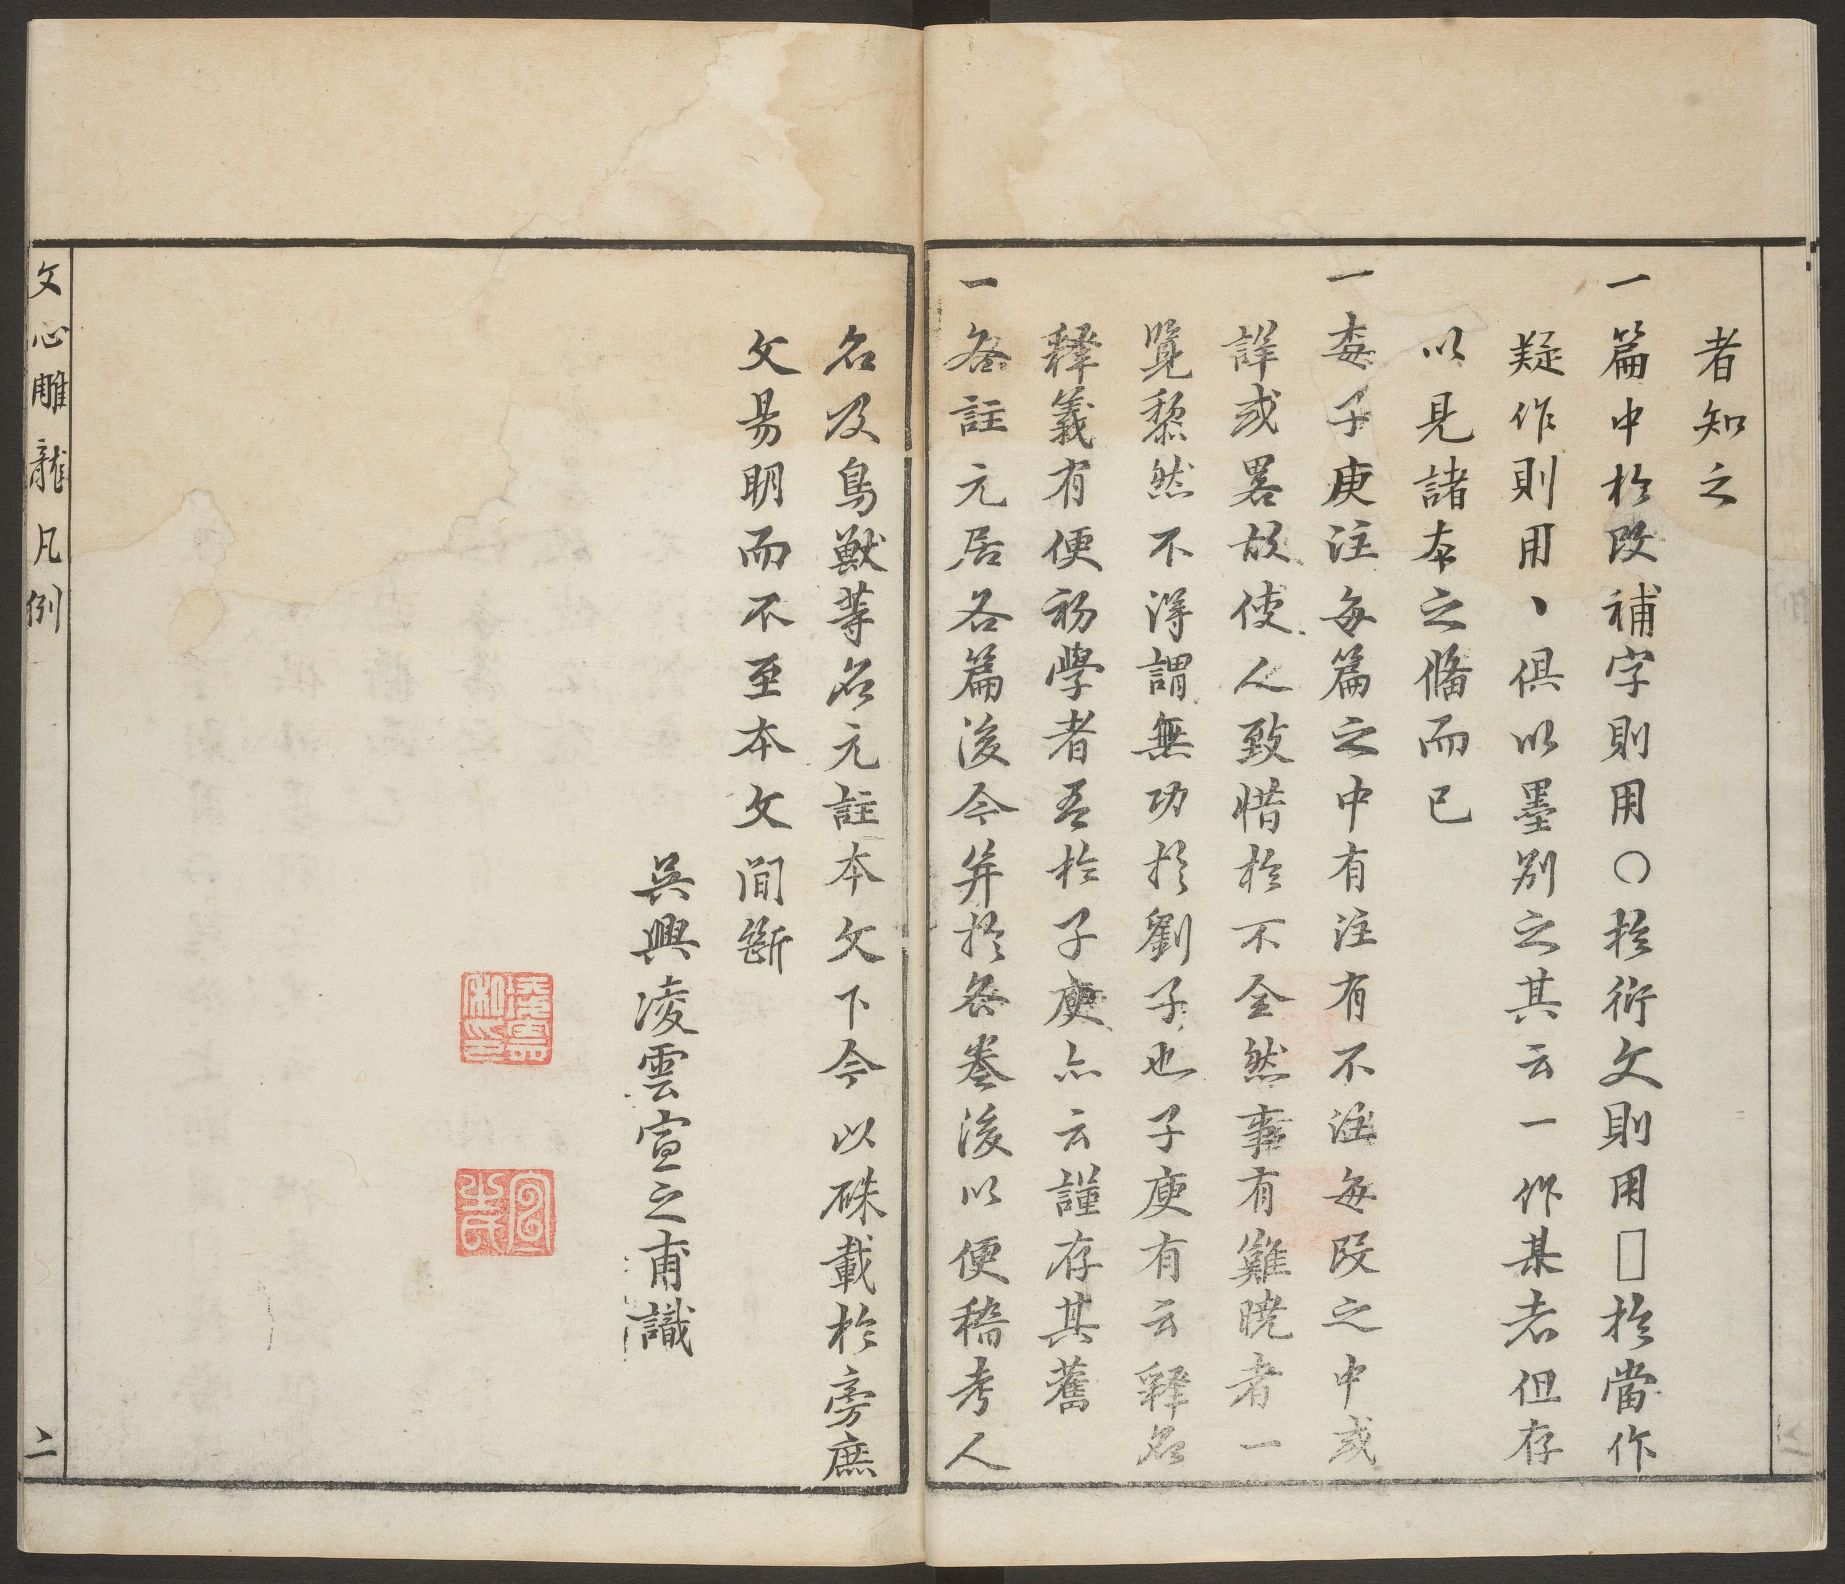 者知之
一篇中於改補字則用○於衍文則用□於當作
疑作則用丶俱以墨別之其云一作某者但存
以見諸本之俻而已
一梅子庚注每篇之中有注有不注每段之中或
詳或畧故使人致惜於不全然事有難曉者一
覽黎然不得謂無功於劉子也子庚有云釋名
釋義有便初學者吾於子庚亦云謹存其舊
一各註元居各篇後今并於各卷後以便稽考人
名及鳥獸等名元註本文下今以硃載於旁庶
文易明而不至本文間斷
吳興凌雲宣之甫識
文心雕龍凡例
二